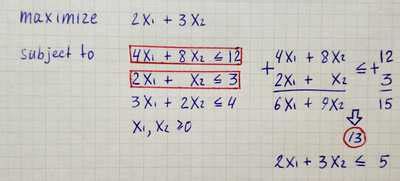 maximize 2x₁ + 3x₂
subject to
4x₁ + 8x₂ ≤ 12
2x₁ + x₂ ≤ 3
3x₁ + 2x₂ ≤ 4
x₁, x₂ ≥ 0
+ 4x₁ + 8x₂ ≤ + 12
2x₁ + x₂ 3
6x₁ + 9x₂ 15
⇓
13
2x₁ + 3x₂ ≤ 5